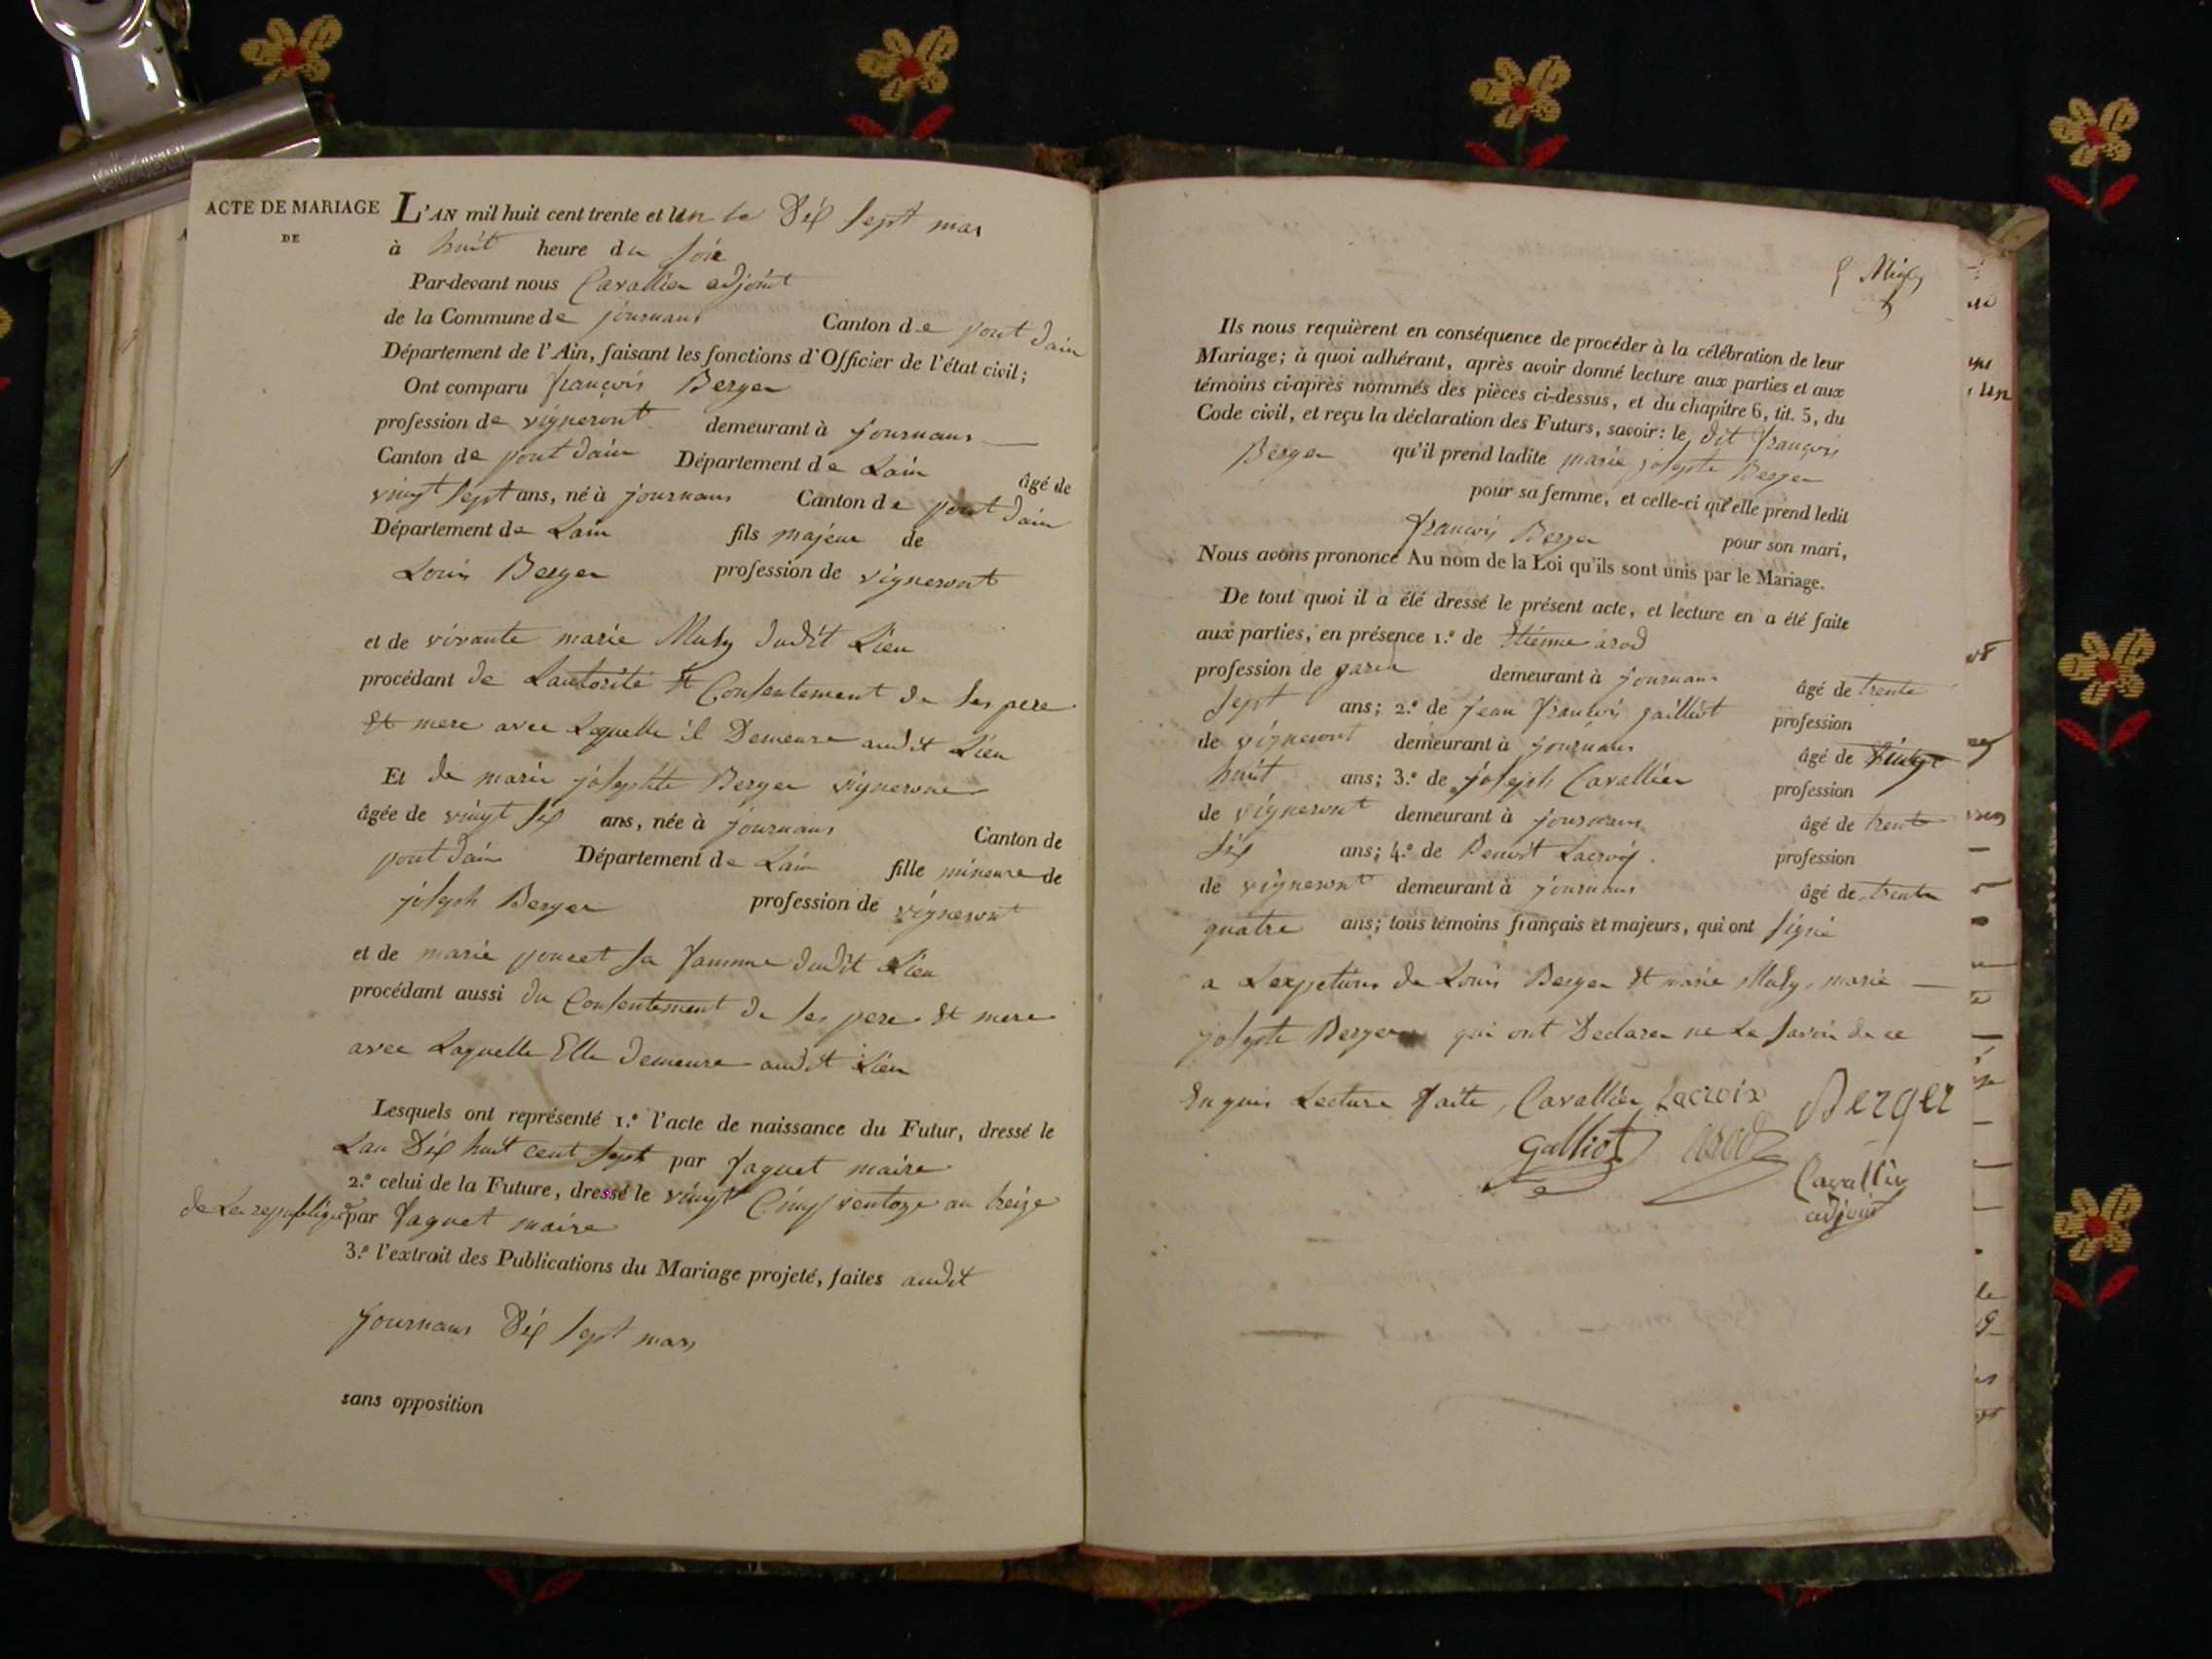 ACTE DE MARIAGE
DE
L'AN mil huit cent trente et un le Dix sept mars
à huit heure du soir
Par-devant nous Cavallier adjoint
de la Commune de journans Canton de pont dain
Département de l'Ain, faisant les fonctions d'Officier de l'état civil;
Ont comparu françois Berger
profession de vigneront demeurant à journans
Canton de pont dain Département de Lain âgé de
vingt sept ans, né à journans Canton de pont dain
Département de Lain fils majeur de
Louis Berger profession de vigneront
et de vivante marie Muty dudit Lieu
procédant de Lautorité Et Consentement de ses pere
Et mere avec Laquelle il Demeure audit Lieu
Et de marie josephte Berger vignerone
âgée de vingt six ans, née à journans Canton de
pont dain Département de Lain fille mineure de
joseph Berger profession de vigneront
et de marie poncet sa famme dudit Lieu
procédant aussi du Consentement de ses pere Et mere
avec Laquelle Elle demeure audit Lieu
Lesquels ont représenté 1.º l'acte de naissance du Futur, dressé le
Lan Dix huit cent sept par faguet maire
2.º celui de la Future, dressé le vingt Cinq ventoze an treize
de La republique par faguet maire
3.º l'extrait des Publications du Mariage projeté, faites audit
journans Dix sept mars
sans opposition
Ils nous requièrent en conséquence de procéder à la célébration de leur
Mariage; à quoi adhérant, après avoir donné lecture aux parties et aux
témoins ci-après nommés des pièces ci-dessus, et du chapitre 6, tit. 5, du
Code civil, et reçu la déclaration des Futurs, savoir: le dit françois
Berger qu'il prend ladite marie josephte Berger
pour sa femme, et celle-ci qu'elle prend ledit
françois Berger pour son mari,
Nous avons prononcé Au nom de la Loi qu'ils sont unis par le Mariage.
De tout quoi il a été dressé le présent acte, et lecture en a été faite
aux parties, en présence 1.º de Etienne arod
profession de garde demeurant à journans âgé de trente
sept ans; 2.º de jean françois gailliot profession
de vigneront demeurant à journans âgé de vingt
huit ans; 3.º de joseph Cavallier profession
de vigneront demeurant à journans âgé de trente
six ans; 4.º de Benoit Lacroix profession
de vigneront demeurant à journans âgé de trente
quatre ans; tous témoins français et majeurs, qui ont signé
a Lexpetion de Louis Berger Et marie Muty, marie
josephte Berger qui ont Declarer ne Le savoir de ce
Enquis Lecture faite, Cavallier Lacroix Berger
galliot arod
Cavallier
adjoint